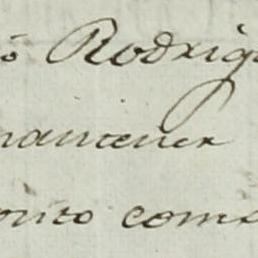 ó Rodrig
mantener
onito com